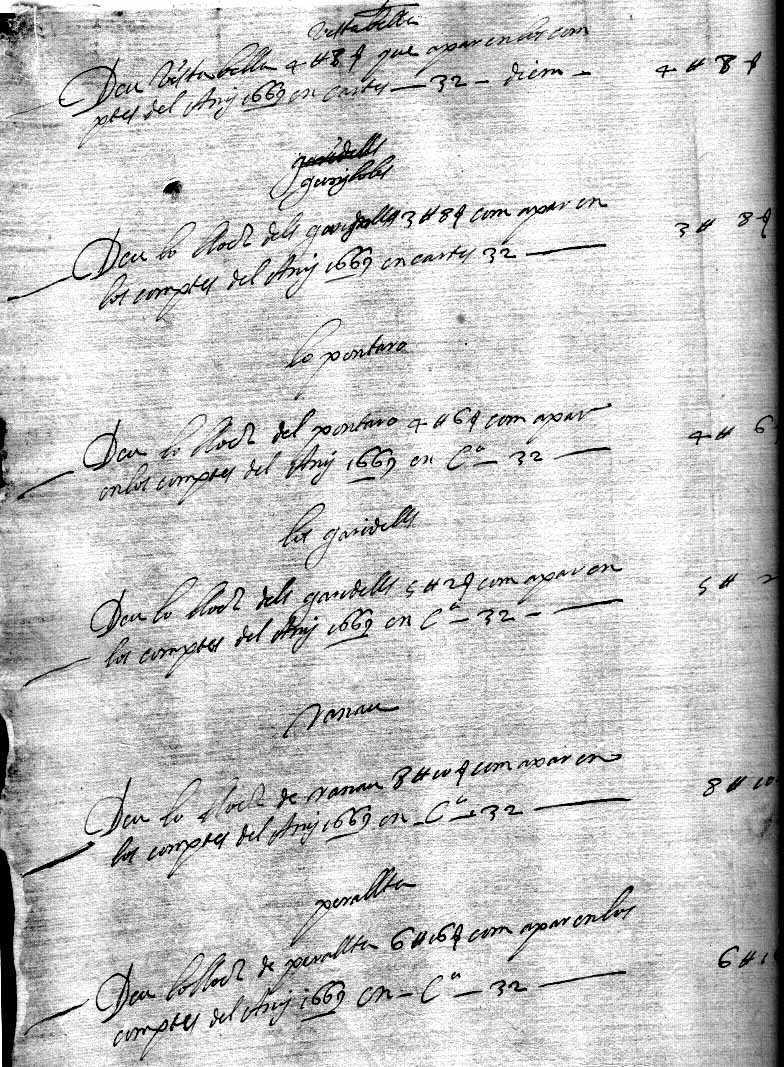 Vistabella
Deu Vistabella 4 # 8 ꝭ que apar en los com
ptes del Any 1669 en cartes — 32 — diem — 4 # 8 ꝭ
garidells
gunyloles
Deu lo lloch dels 3 # 8 ꝭ com apar en
los comptes del Any 1669 en cartes 32 — 3 # 8 ꝭ
lo pontaro
Deu lo lloch del pontaro 4 # 6 ꝭ com apar
en los comptes del Any 1669 en Cª — 32 — 4 # 6
los garidells
Deu lo lloch dels garidells 5 # 2 ꝭ com apar en
los comptes del Any 1669 en Cª — 32 — 5 # 2
Ranau
Deu lo lloch de Ranau 8 # 10 ꝭ com apar en
los comptes del Any 1669 en — Cª — 32 — 8 # 10
perallta
Deu lo lloch de perallta 6 # 16 ꝭ com apar en los
comptes del Any 1669 en — Cª — 32 — 6 # 1